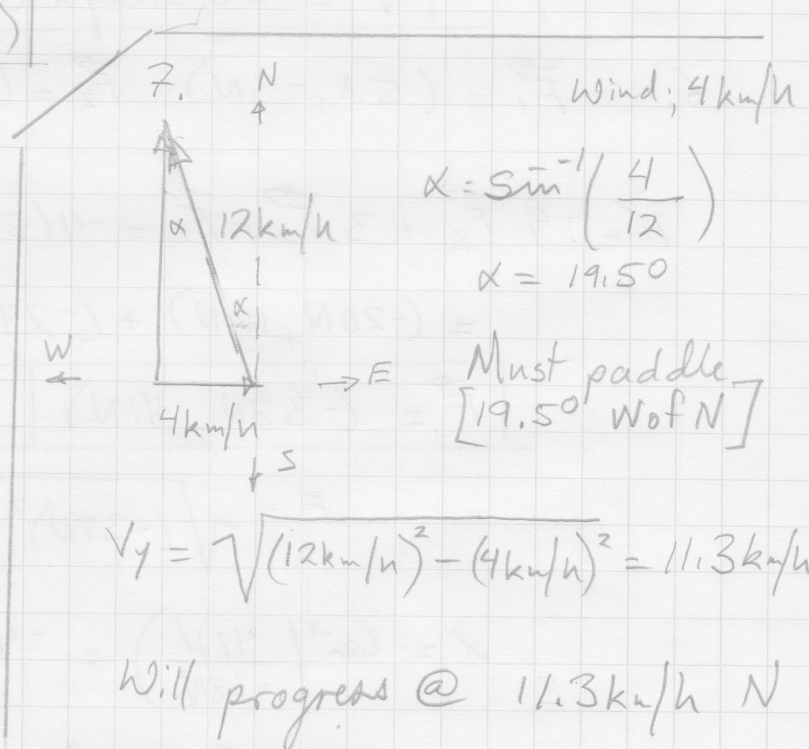 7.
N
Wind; 4km/h
α 12km/h
α = sin⁻¹(4/12)
α = 19.5°
α
W
E
4km/h
S
Must paddle
[19.5° W of N]
Vy = √((12km/h)² - (4km/h)²) = 11.3km/h
Will progress @ 11.3km/h N